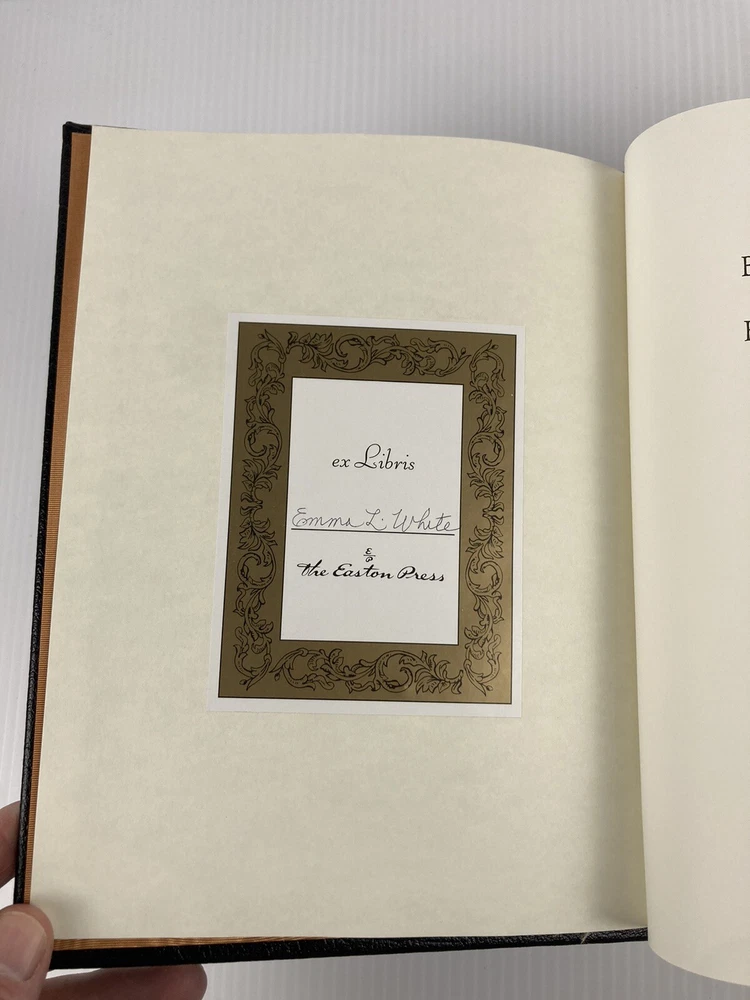 ex Libris
Emma L. White
E
P
the Easton Press